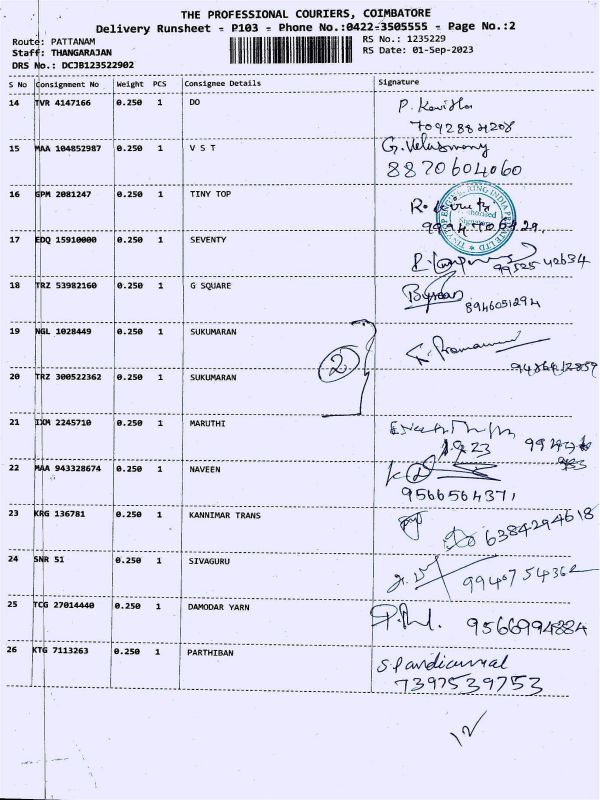 THE PROFESSIONAL COURIERS, COIMBATORE
Delivery Runsheet - P103 - Phone No.:0422-3505555 - Page No.:2
Route: PATTANAM RS No.: 1235229
Staff: THANGARAJAN RS Date: 01-Sep-2023
DRS No.: DCJB123522902
S No Consignment No Weight PCS Consignee Details Signature
14 TVR 4147166 0.250 1 DO P. Kavitha
7092884208
15 MAA 104852987 0.250 1 V S T G. Velusmany
8870604060
16 GPM 2081247 0.250 1 TINY TOP
17 EDQ 15910000 0.250 1 SEVENTY
18 TRZ 53982160 0.250 1 G SQUARE
8946051294
19 NGL 1028449 0.250 1 SUKUMARAN
2
20 TRZ 300522362 0.250 1 SUKUMARAN
21 IXM 2245710 0.250 1 MARUTHI
1.9.23
22 MAA 943328674 0.250 1 NAVEEN
9566564371
23 KRG 136781 0.250 1 KANNIMAR TRANS
6384294618
24 SNR 51 0.250 1 SIVAGURU
25 TCG 27014440 0.250 1 DAMODAR YARN
9566994884
26 KTG 7113263 0.250 1 PARTHIBAN
7397539753